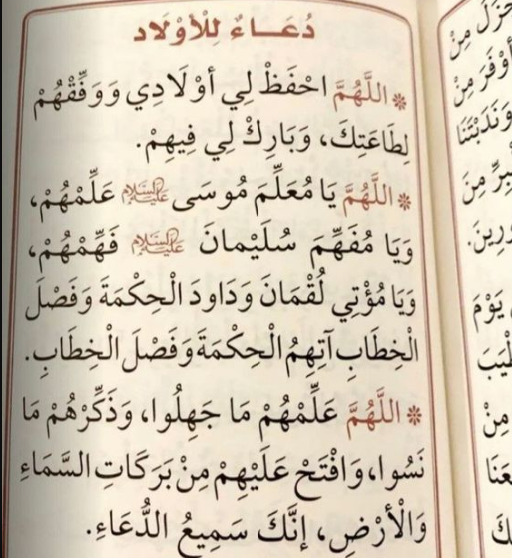 دُعَـــاءٌ لِلْأَوْلَاد
* اللَّهُمَّ احْفَظْ لِي أَوْلَادِي وَوَفِّقْهُمْ
لِطَاعَتِكَ، وَبَارِكْ لِي فِيهِمْ.
* اللَّهُمَّ يَا مُعَلِّمَ مُوسَى عَلَيْهِ السَّلَام عَلِّمْهُمْ،
وَيَا مُفَهِّمَ سُلَيْمانَ عَلَيْهِ السَّلَام فَهِّمْهُمْ،
وَيَا مُؤْتِي لُقْمَانَ وَدَاودَ الْحِكْمَةَ وَفَصْلَ
الْخِطَابِ آتِهِمُ الْحِكْمَةَ وَفَصْلَ الْخِطَابِ.
* اللَّهُمَّ عَلِّمْهُمْ مَا جَهِلُوا، وَذَكِّرْهُمْ مَا
نَسُوا، وَافْتَحْ عَلَيْهِمْ مِنْ بَرَكَاتِ السَّمَاءِ
وَالْأَرْضِ، إِنَّكَ سَمِيعُ الدُّعَاءِ.
مِنْ
أَوْفَرِ مِنْ
مِنَ
يَوْمَ
مِنْ